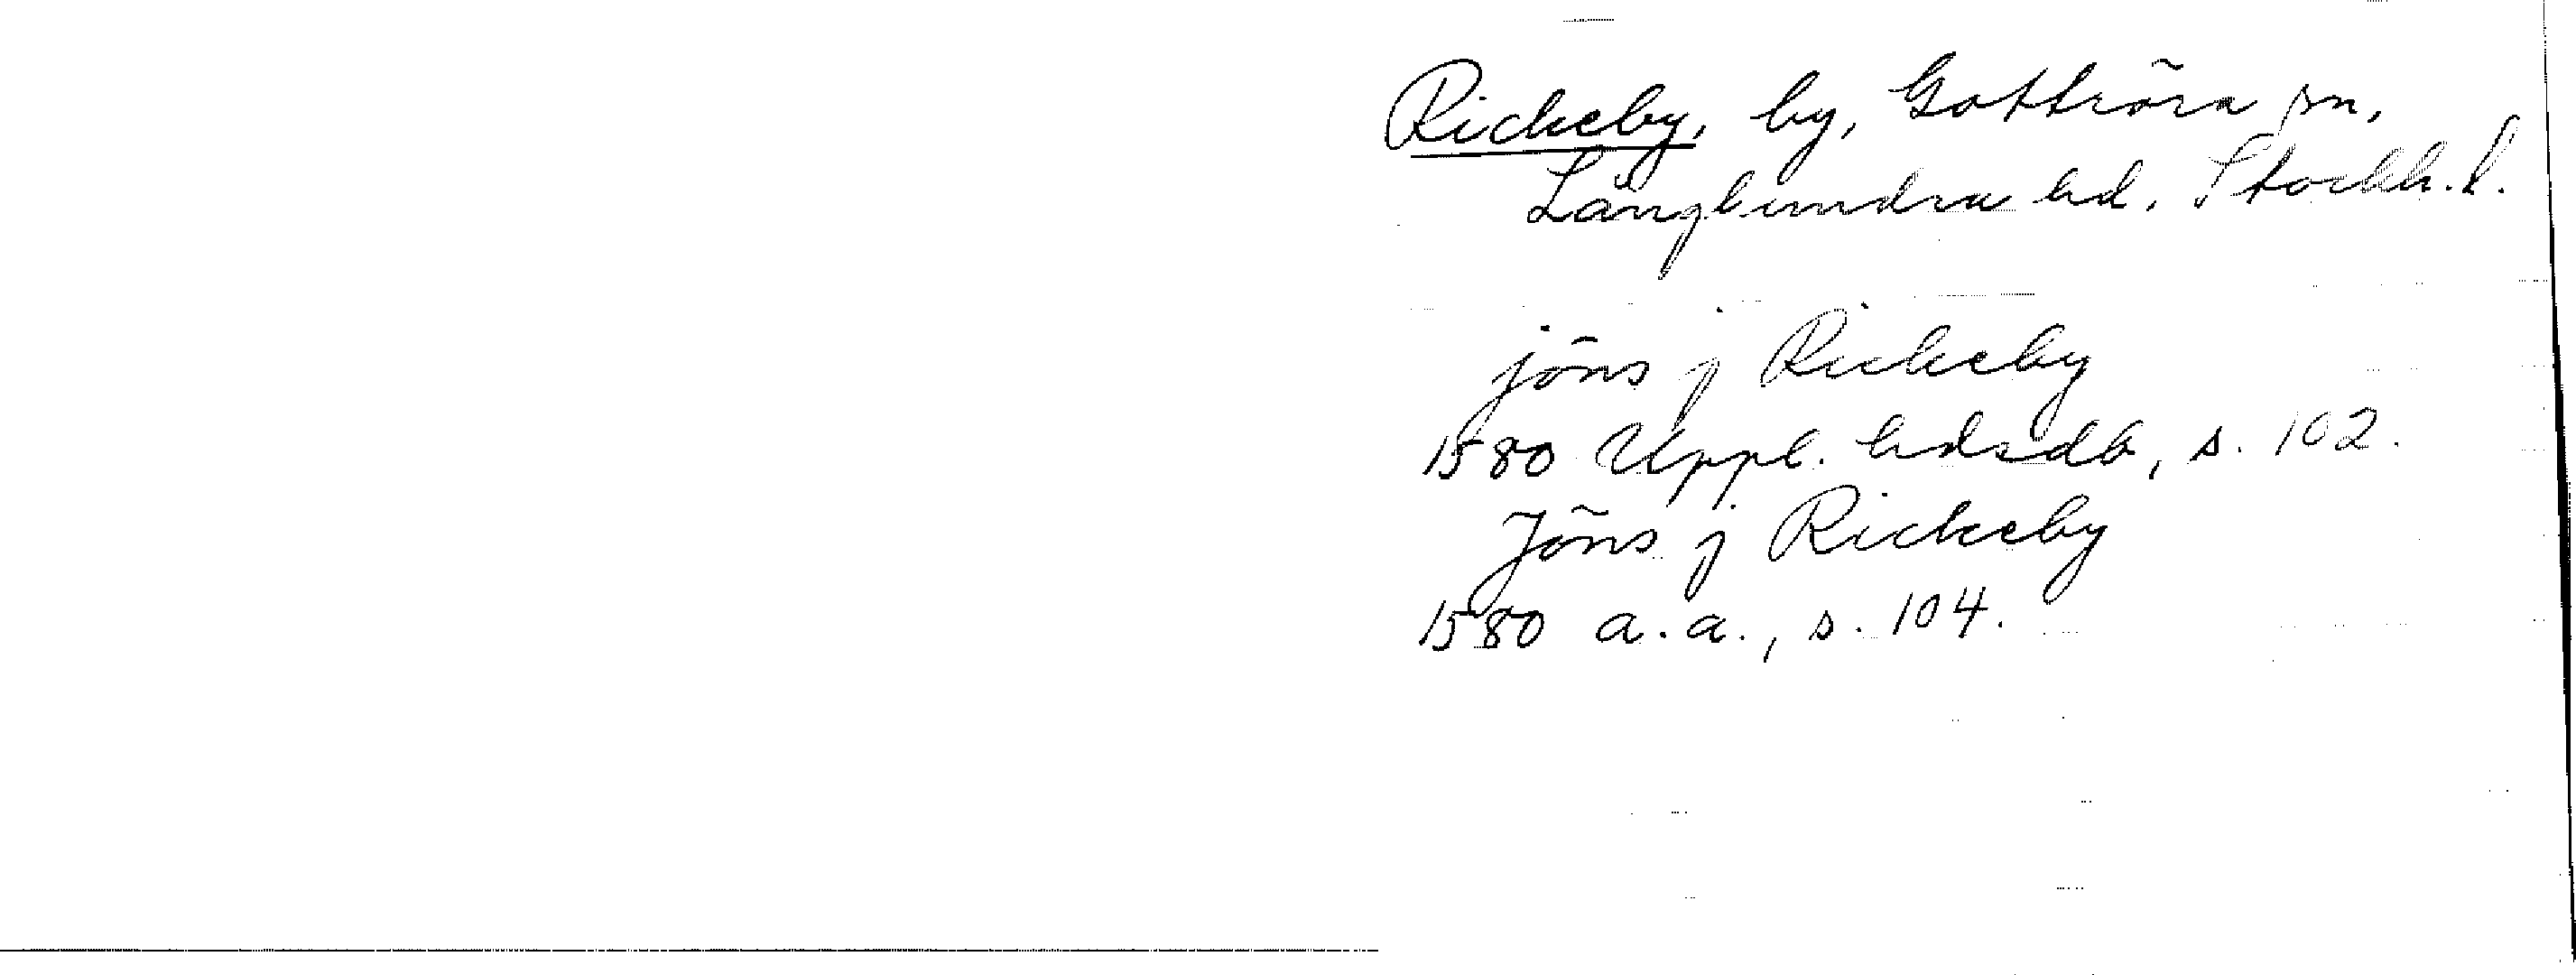 Rickeby, by, Gottröra sn,
Långhundra hd, Stockh. l.
jöns j Rickeby
1580 Uppl. hdsdb, s. 102.
Jöns j Rickeby
1580 a.a., s. 104.